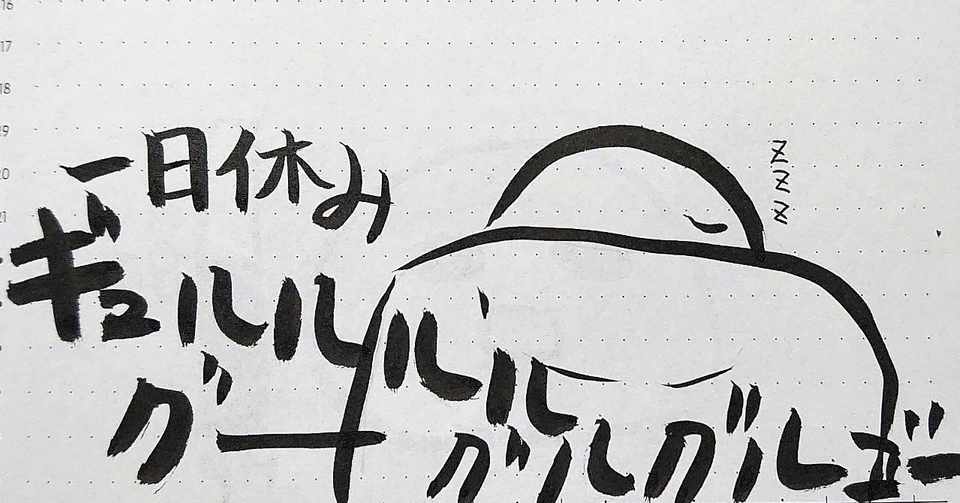 16
17
18
19
20
21
一日休み
zzz
ギュルルルル
グー
グルグルゴー